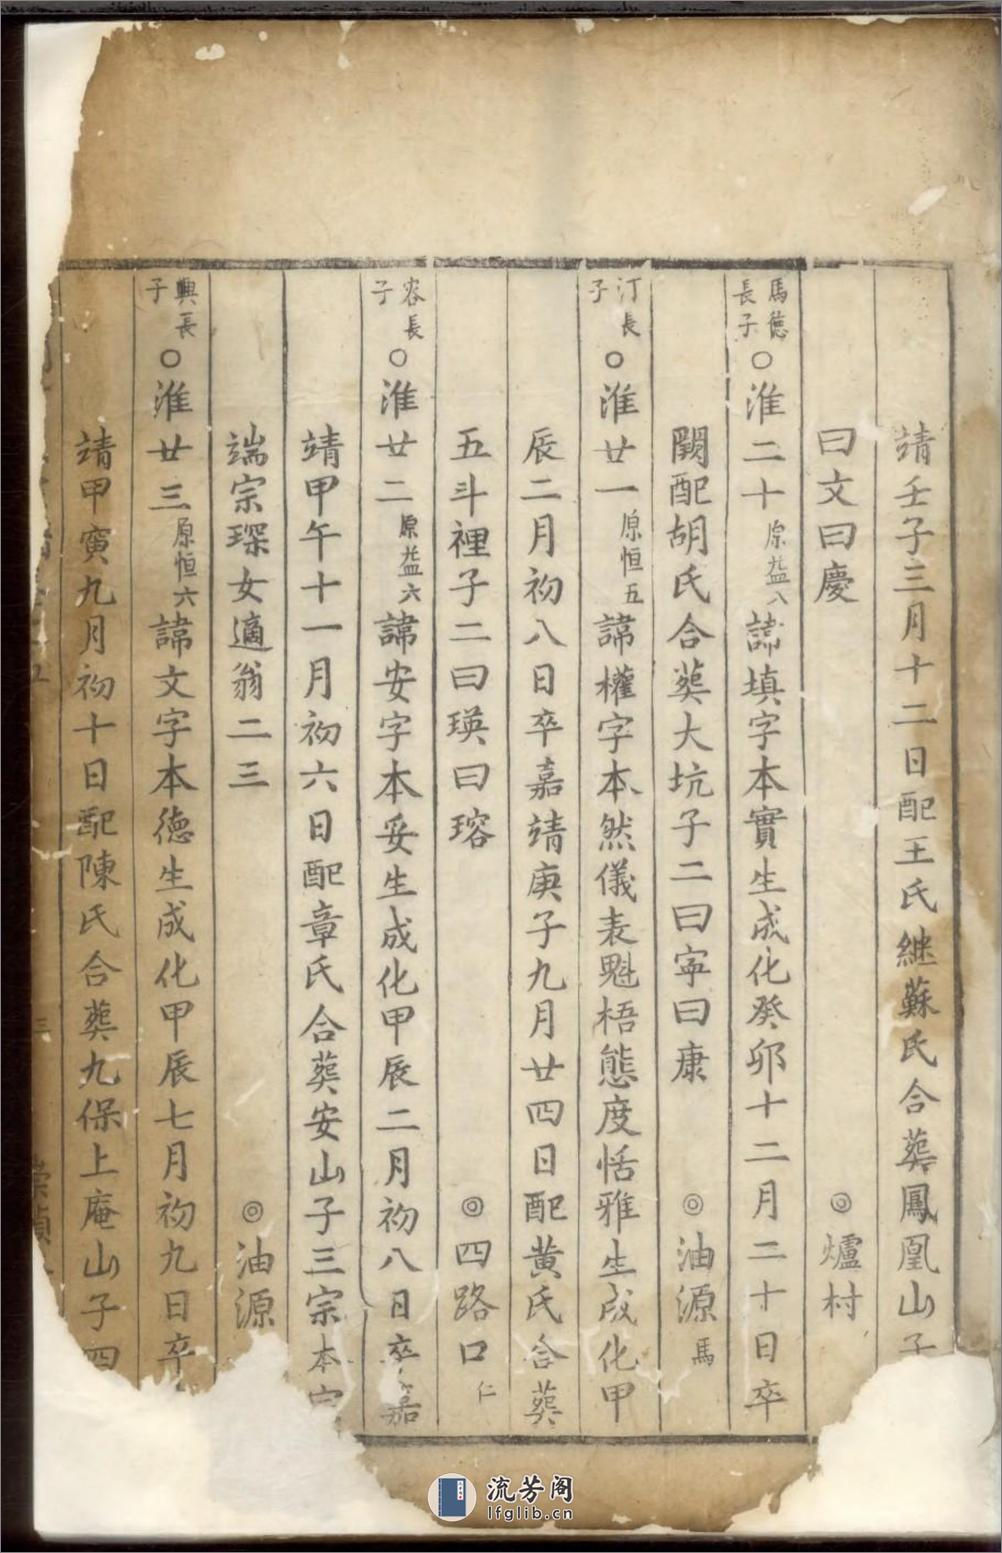 靖壬子三月十二日配王氏継蘇氏合葬鳳凰山子
曰文曰慶 ◎爐村
馬德長子○淮二十原益八諱填字本實生成化癸卯十二月二十日卒
闕配胡氏合葬大坑子二曰寕曰康 ◎油源馬
汀長子○淮廿一原恒五諱權字本然儀表魁梧態度恬雅生成化甲
辰二月初八日卒嘉靖庚子九月廿四日配黄氏合葬
五斗裡子二曰瑛曰瑢 ◎四路口仁
容長子○淮廿二原益六諱安字本妥生成化甲辰二月初八日卒嘉
靖甲午十一月初六日配章氏合葬安山子三宗本宗
端宗琛女適翁二三 ◎油源
興長子○淮廿三原恒六諱文字本德生成化甲辰七月初九日卒
靖甲寅九月初十日配陳氏合葬九保上庵山子四
三
崇禎
流芳阁
lfglib.cn